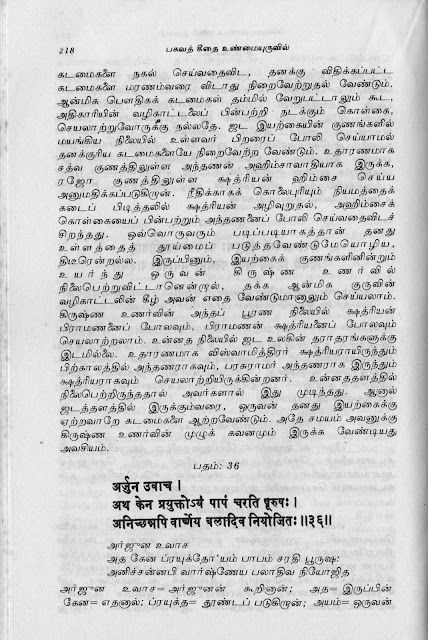 218
பகவத் கீதை உண்மையுருவில்
கடமைகளை நகல் செய்வதைவிட, தனக்கு விதிக்கப்பட்ட
கடமைகளை மரணம்வரை விடாது நிறைவேற்றுதல் வேண்டும்.
ஆன்மிக பௌதிகக் கடமைகள் தம்மில் வேறுபட்டாலும் கூட,
அதிகாரியின் வழிகாட்டலைப் பின்பற்றி நடக்கும் கொள்கை,
செயலாற்றுவோருக்கு நல்லதே. ஜட இயற்கையின் குணங்களில்
மயங்கிய நிலையில் உள்ளவர் பிறரைப் போலி செய்யாமல்
தனக்குரிய கடமைகளையே நிறைவேற்ற வேண்டும். உதாரணமாக
சத்வ குணத்திலுள்ள அந்தணன் அஹிம்சாவாதியாக இருக்க,
ரஜோ குணத்திலுள்ள க்ஷத்ரியன் ஹிம்சை செய்ய
அனுமதிக்கப்படுகிறான். நீதிக்காகக் கொலைபுரியும் நியமத்தைக்
கடைப் பிடித்தலில் க்ஷத்ரியன் அழிவுறுதல், அஹிம்சைக்
கொள்கையைப் பின்பற்றும் அந்தணனைப் போலி செய்வதைவிடச்
சிறந்தது. ஒவ்வொருவரும் படிப்படியாகத்தான் தனது
உள்ளத்தைத் தூய்மைப் படுத்தவேண்டுமேயொழிய,
திடீரென்றல்ல. இருப்பினும், இயற்கைக் குணங்களினின்றும்
உயர்ந்து ஒருவன் கிருஷ்ண உணர்வில்
நிலைபெற்றுவிட்டானென்றுல், தக்க ஆன்மிக குருவின்
வழிகாட்டலின் கீழ் அவன் எதை வேண்டுமானாலும் செய்யலாம்.
கிருஷ்ண உணர்வின் அந்தப் பூரண நிலையில் க்ஷத்ரியன்
பிராமணனைப் போலவும், பிராமணன் க்ஷத்ரியனைப் போலவும்
செயலாற்றலாம். உன்னத நிலையில் ஜட உலகின் தராதரங்களுக்கு
இடமில்லை. உதாரணமாக விஸ்வாமித்திரர் க்ஷத்ரியராயிருந்தும்
பிற்காலத்தில் அந்தணராகவும், பரசுராமர் அந்தணராக இருந்தும்
க்ஷத்ரியராகவும் செயலாற்றியிருக்கின்றனர். உன்னததளத்தில்
நிலைபெற்றிருந்ததால் அவர்களால் இது முடிந்தது. ஆனால்
ஜடத்தளத்தில் இருக்கும்வரை, ஒருவன் தனது இயற்கைக்கு
ஏற்றவாறே கடமைகளை ஆற்றவேண்டும். அதே சமயம் அவனுக்கு
கிருஷ்ண உணர்வின் முழுக் கவனமும் இருக்க வேண்டியது
அவசியம்.
பதம்: 36
अर्जुन उवाच ।
अथ केन प्रयुक्तोऽयं पापं चरति पूरुषः।
अनिच्छन्नपि वार्ष्णेय बलादिव नियोजितः॥३६॥
அர்ஜுன உவாச
அத கேன ப்ரயுக்தோ'யம் பாபம் சரதி பூருஷ:
அனிச்சன்னபி வார்ஷ்ணேய பலாதிவ நியோஜித
அர்ஜுன உவாச= அர்ஜுனன் கூறினான்; அத= இருப்பின்
கேன= எதனால்; ப்ரயுக்த= தூண்டப் படுகிறான்; அயம்= ஒருவன்